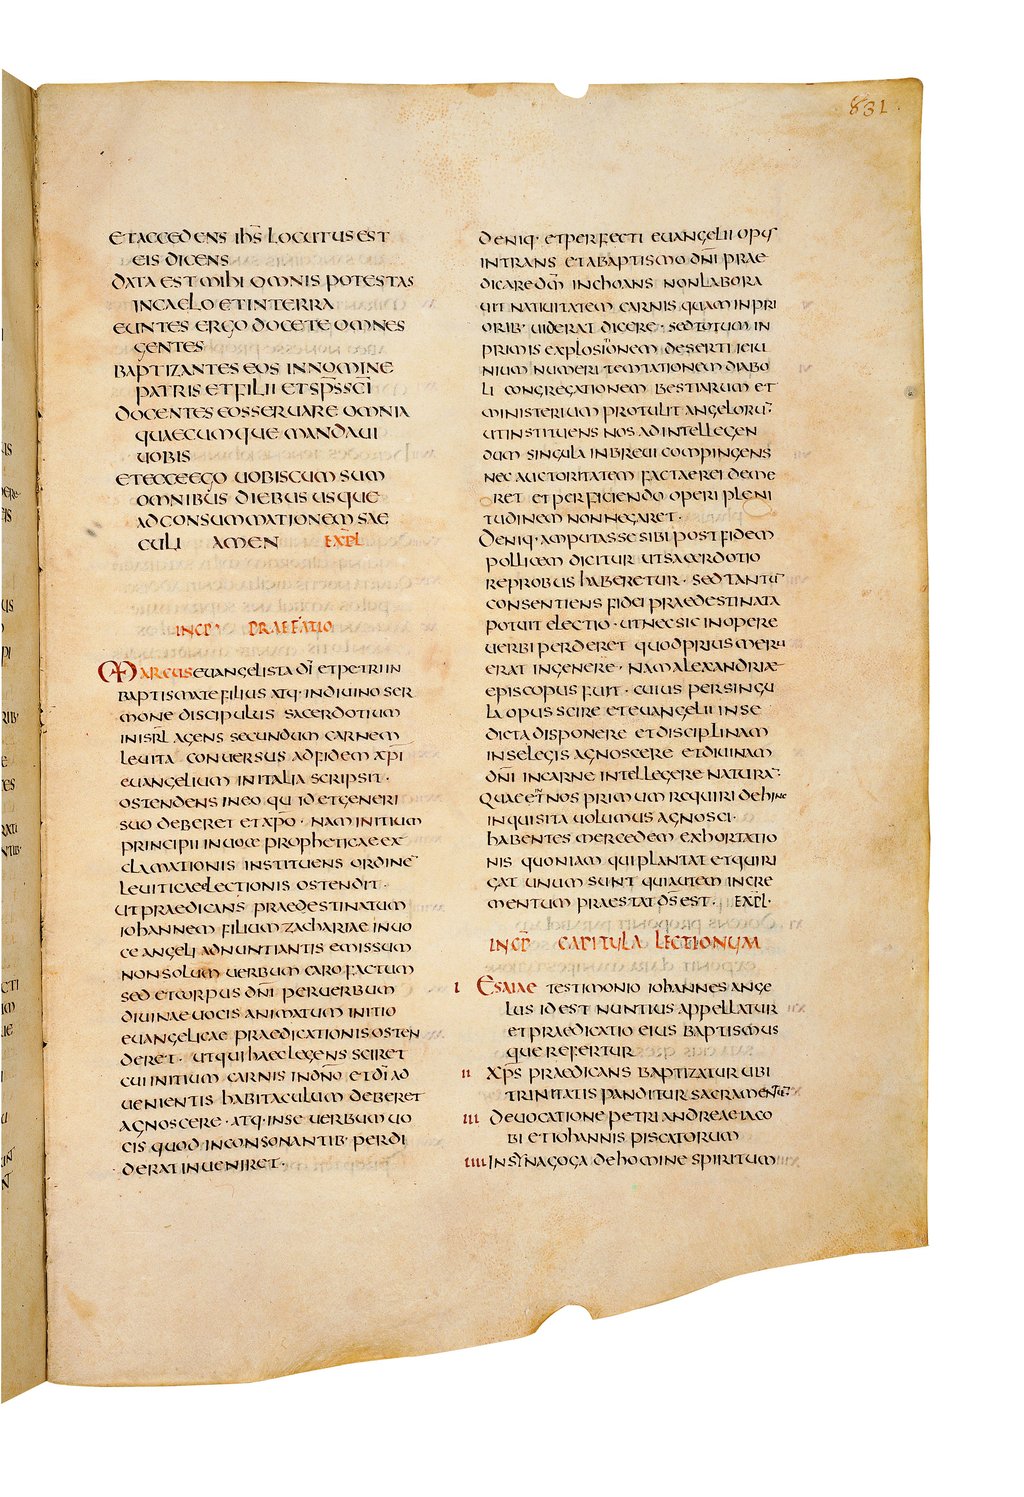 831
ET ACCEDENS IHS LOCUTUS EST
EIS DICENS
DATA EST MIHI OMNIS POTESTAS
IN CAELO ET IN TERRA
EUNTES ERGO DOCETE OMNES
GENTES
BAPTIZANTES EOS IN NOMINE
PATRIS ET FILII ET SPS SCI
DOCENTES EOS SERVARE OMNIA
QUAECUMQUE MANDAVI
UOBIS
ET ECCE EGO UOBISCUM SUM
OMNIBUS DIEBUS USQUE
AD CONSUMMATIONEM SAE
CULI AMEN EXPL
INCP PRAEFATIO
MARCUS EUANGELISTA DI ET PETRI IN
BAPTISMATE FILIUS ATQ· IN DIUINO SER
MONE DISCIPULUS SACERDOTIUM
IN ISRL AGENS SECUNDUM CARNEM
LEUITA CONUERSUS AD FIDEM XPI
EUANGELIUM IN ITALIA SCRIPSIT·
OSTENDENS IN EO QU ID ET GENERI
SUO DEBERET ET XPO· NAM INITIUM
PRINCIPII IN UOCE PROPHETICAE EX
CLAMATIONIS INSTITUENS ORDINE
LEUITICAE LECTIONIS OSTENDIT·
UT PRAEDICANS PRAEDESTINATUM
IOHANNEM FILIUM ZACHARIAE IN UO
CE ANGELI ADNUNTIANTIS EMISSUM
NON SOLUM UERBUM CARO FACTUM
SED ET CORPUS DNI PER UERBUM
DIUINAE UOCIS ANIMATUM INITIO
EUANGELICAE PRAEDICATIONIS OSTEN
DERET· UT QUI HAEC LEGENS SCIRET
CUI INITIUM CARNIS IN DNO ET DI AD
UENIENTIS HABITACULUM DEBERET
AGNOSCERE· ATQ· IN SE UERBUM UO
CIS QUOD IN CONSONANTIB· PERDI
DERAT INUENIRET·
DENIQ· ET PERFECTI EUANGELII OPUS
INTRANS ET A BAPTISMO DNI PRAE
DICARE DM INCHOANS NON LABORA
UIT NATIUITATEM CARNIS QUAM IN PRI
ORIB· UIDERAT DICERE· SED TOTUM IN
PRIMIS EXPLOSIONEM DESERTI IEIU
NIUM NUMERI TEMTATIONEM DIABO
LI CONGREGATIONEM BESTIARUM ET
MINISTERIUM PROTULIT ANGELORU
UT INSTITUENS NOS AD INTELLEGEN
DUM SINGULA IN BREUI COMPINGENS
NEC AUCTORITATEM FACTAE REI DEME
RET ET PERFICIENDO OPERI PLENI
TUDINEM NON NEGARET·
DENIQ· AMPUTASSE SIBI POST FIDEM
POLLICEM DICITUR UT SACERDOTIO
REPROBUS HABERETUR· SED TANTU
CONSENTIENS FIDEI PRAEDESTINATA
POTUIT ELECTIO· UT NEC SIC IN OPERE
UERBI PERDERET QUOD PRIUS MERU
ERAT IN GENERE· NAM ALEXANDRIAE
EPISCOPUS FUIT· CUIUS PER SINGU
LA OPUS SCIRE ET EUANGELII IN SE
DICTA DISPONERE ET DISCIPLINAM
IN SE LEGIS AGNOSCERE ET DIUINAM
DNI IN CARNE INTELLEGERE NATURA
QUAE ET NOS PRIMUM REQUIRI DEHINC
INQUISITA UOLUMUS AGNOSCI·
HABENTES MERCEDEM EXHORTATIO
NIS QUONIAM QUI PLANTAT ET QUI RI
GAT UNUM SUNT QUI AUTEM INCRE
MENTUM PRAESTAT DS EST· EXPL·
INCP CAPITULA LECTIONUM
I ESAIAE TESTIMONIO IOHANNES ANGE
LUS ID EST NUNTIUS APPELLATUR
ET PRAEDICATIO EIUS BAPTISMUS
QUE REFERTUR
II XPS PRAEDICANS BAPTIZATUR UBI
TRINITATIS PANDITUR SACRAMENTU
III DE UOCATIONE PETRI ANDREAE IACO
BI ET IOHANNIS PISCATORUM
IIII IN SYNAGOGA DE HOMINE SPIRITUM